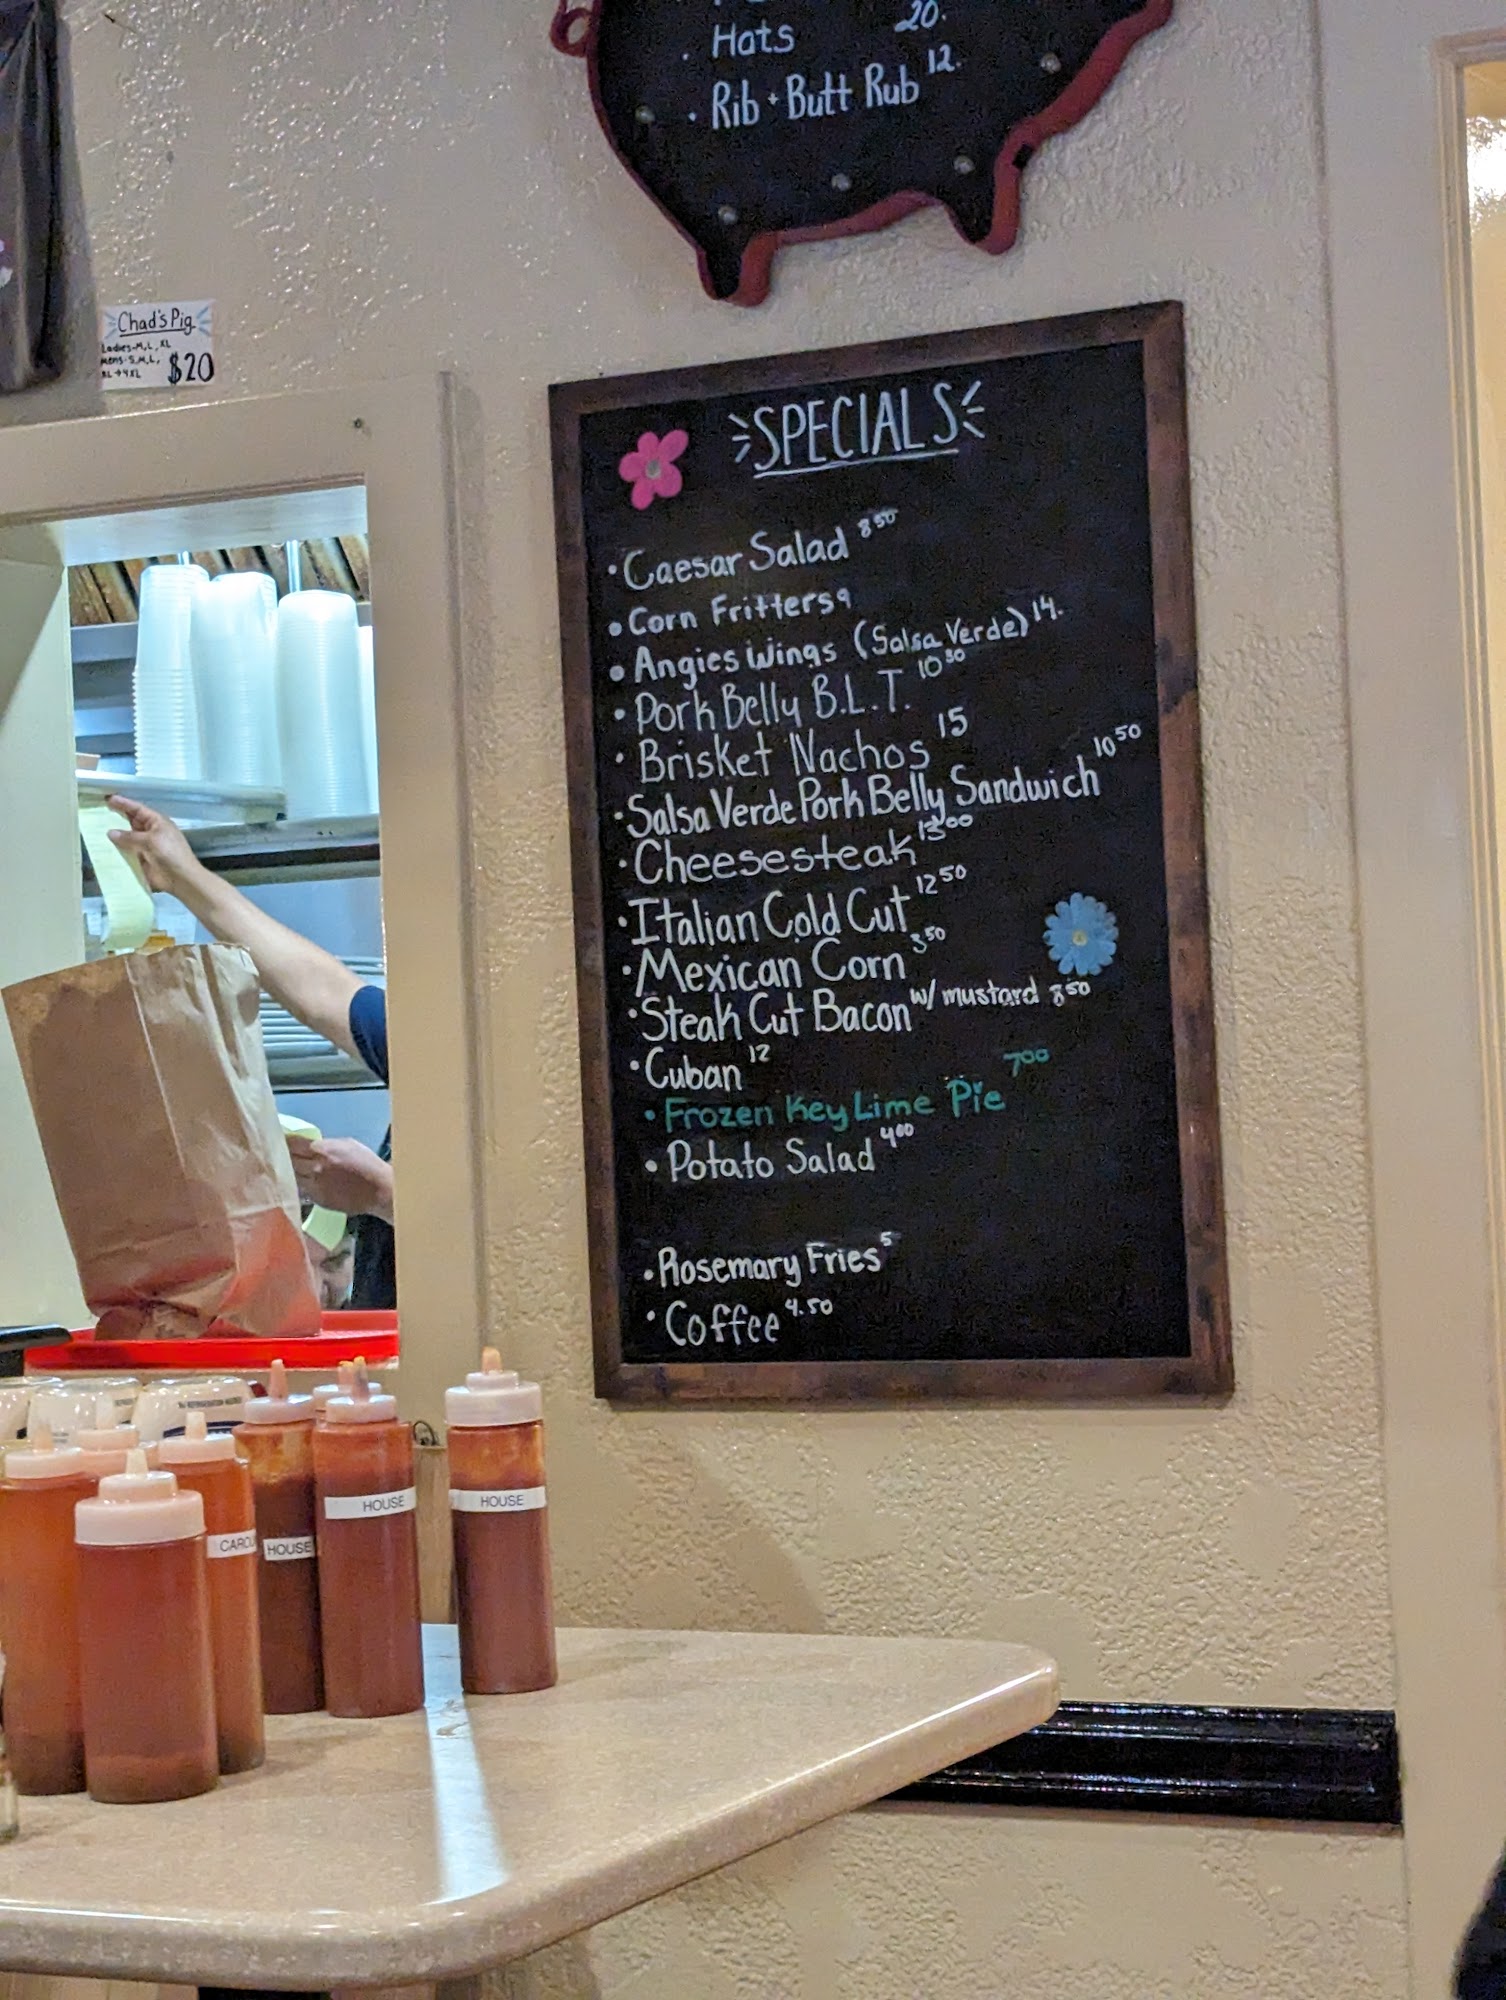 Hats 20.
Rib + Butt Rub 12.
Chad's Pig
Ladies-M, L, XL
Mens-S, M, L,
XL→4XL
$20
SPECIALS
Caesar Salad 8 50
Corn Fritters 9
Angies Wings (Salsa Verde) 14.
Pork Belly B.L.T. 10 50
Brisket Nachos 15
Salsa Verde Pork Belly Sandwich 10 50
Cheesesteak 13 00
Italian Cold Cut 12 50
Mexican Corn 3 50
Steak Cut Bacon w/ mustard 8 50
Cuban 12
Frozen Key Lime Pie 7 00
Potato Salad 4 00
Rosemary Fries 5
Coffee 4.50
HOUSE
HOUSE
HOUSE